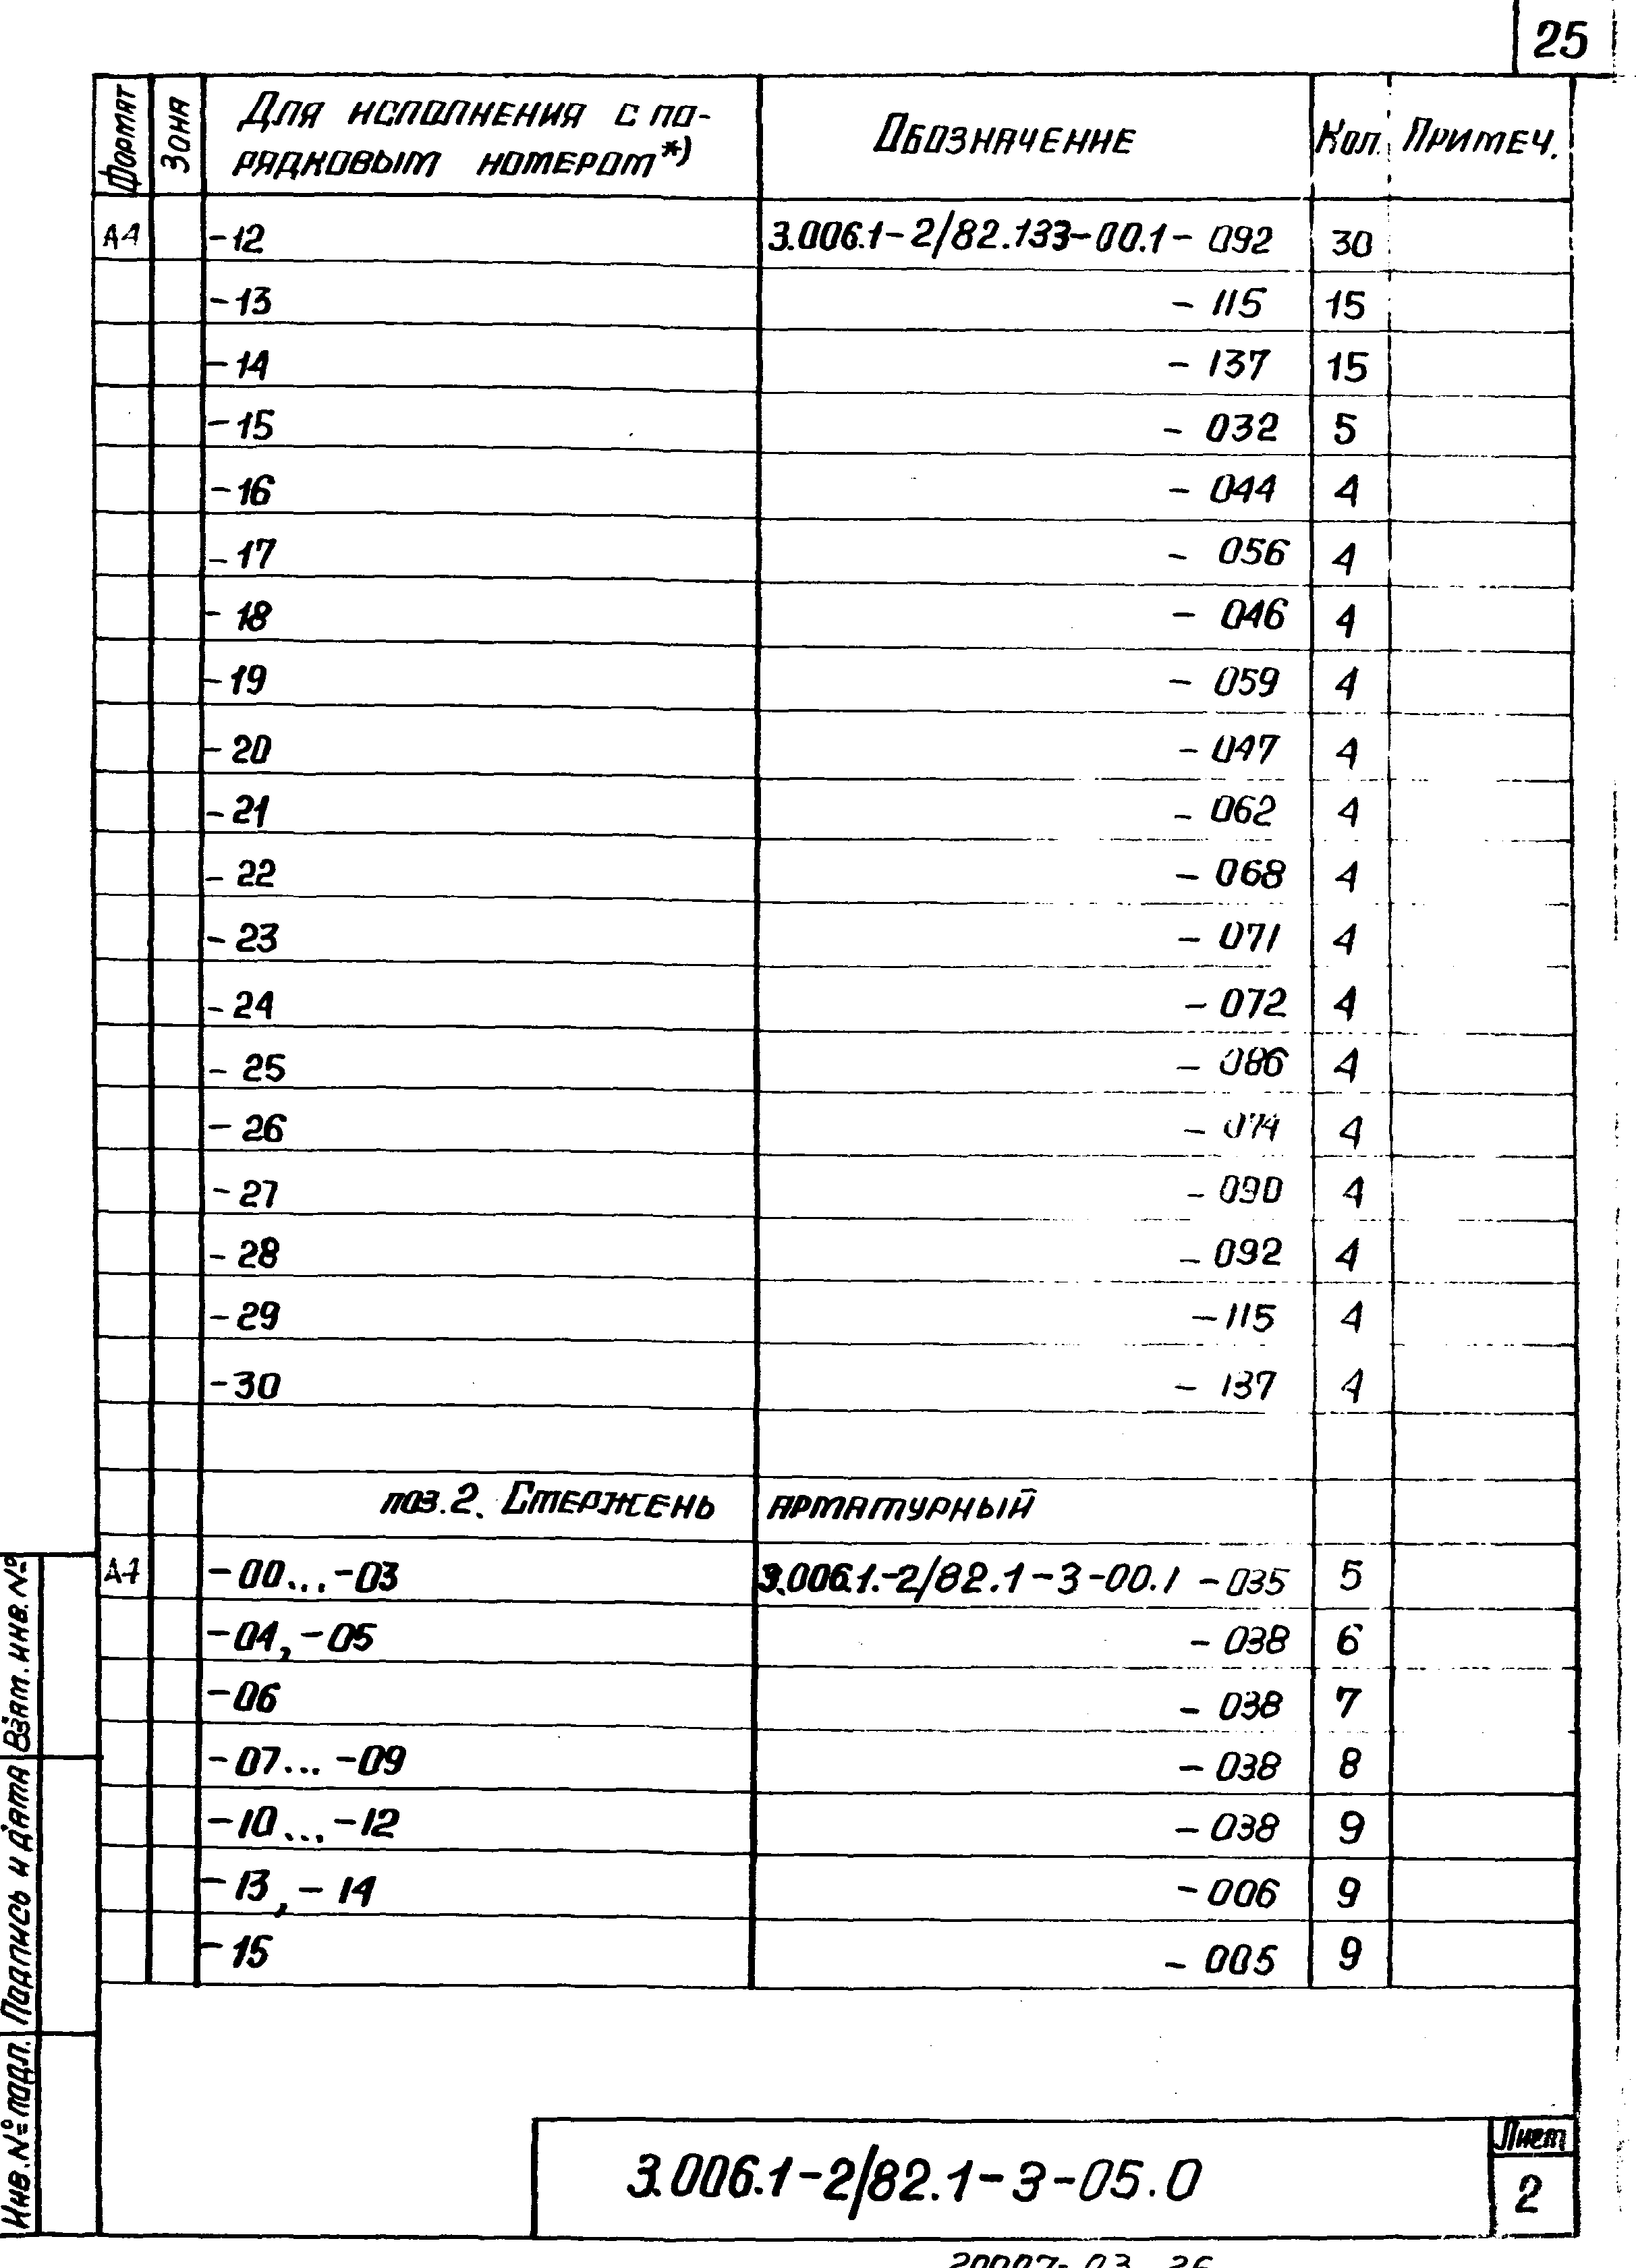 25
Формат Зона Для исполнения с по- Обозначение Кол. Примеч.
рядковым номером*)
А4 -12 3.006.1-2/82.133-00.1- 092 30
-13 - 115 15
-14 - 137 15
-15 - 032 5
-16 - 044 4
-17 - 056 4
-18 - 046 4
-19 - 059 4
-20 - 047 4
-21 - 062 4
-22 - 068 4
-23 - 071 4
-24 - 072 4
-25 - 086 4
-26 - 074 4
-27 - 090 4
-28 - 092 4
-29 - 115 4
-30 - 137 4
поз.2. Стержень арматурный
А4 -00...-03 3.006.1.-2/82.1-3-00.1 -035 5
-04,-05 - 038 6
-06 - 038 7
-07...-09 - 038 8
-10...-12 - 038 9
-13,-14 - 006 9
-15 - 005 9
Инв.№подл. Подпись и дата Взят.инв.№
3.006.1-2/82.1-3-05.0
Лист
2